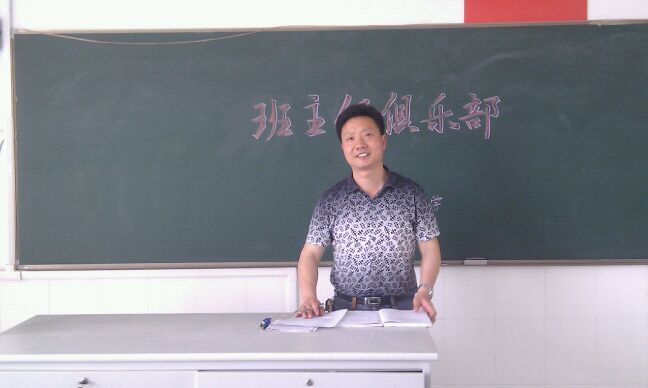 班主任俱乐部
学